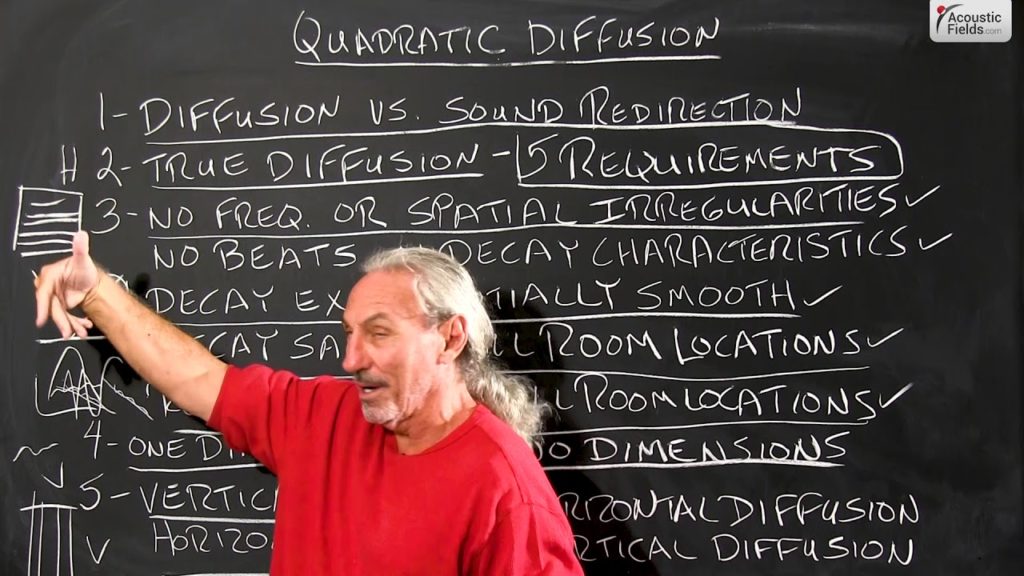 Acoustic Fields.com
QUADRATIC DIFFUSION
1- DIFFUSION VS. SOUND REDIRECTION
H 2- TRUE DIFFUSION - 5 REQUIREMENTS
3- NO FREQ. OR SPATIAL IRREGULARITIES ✓
NO BEATS DECAY CHARACTERISTICS ✓
DECAY EX TIALLY SMOOTH ✓
CAY SA LL ROOM LOCATIONS ✓
L ROOM LOCATIONS ✓
4- ONE DI O DIMENSIONS
5- VERTIC RIZONTAL DIFFUSION
V HORIZO RTICAL DIFFUSION